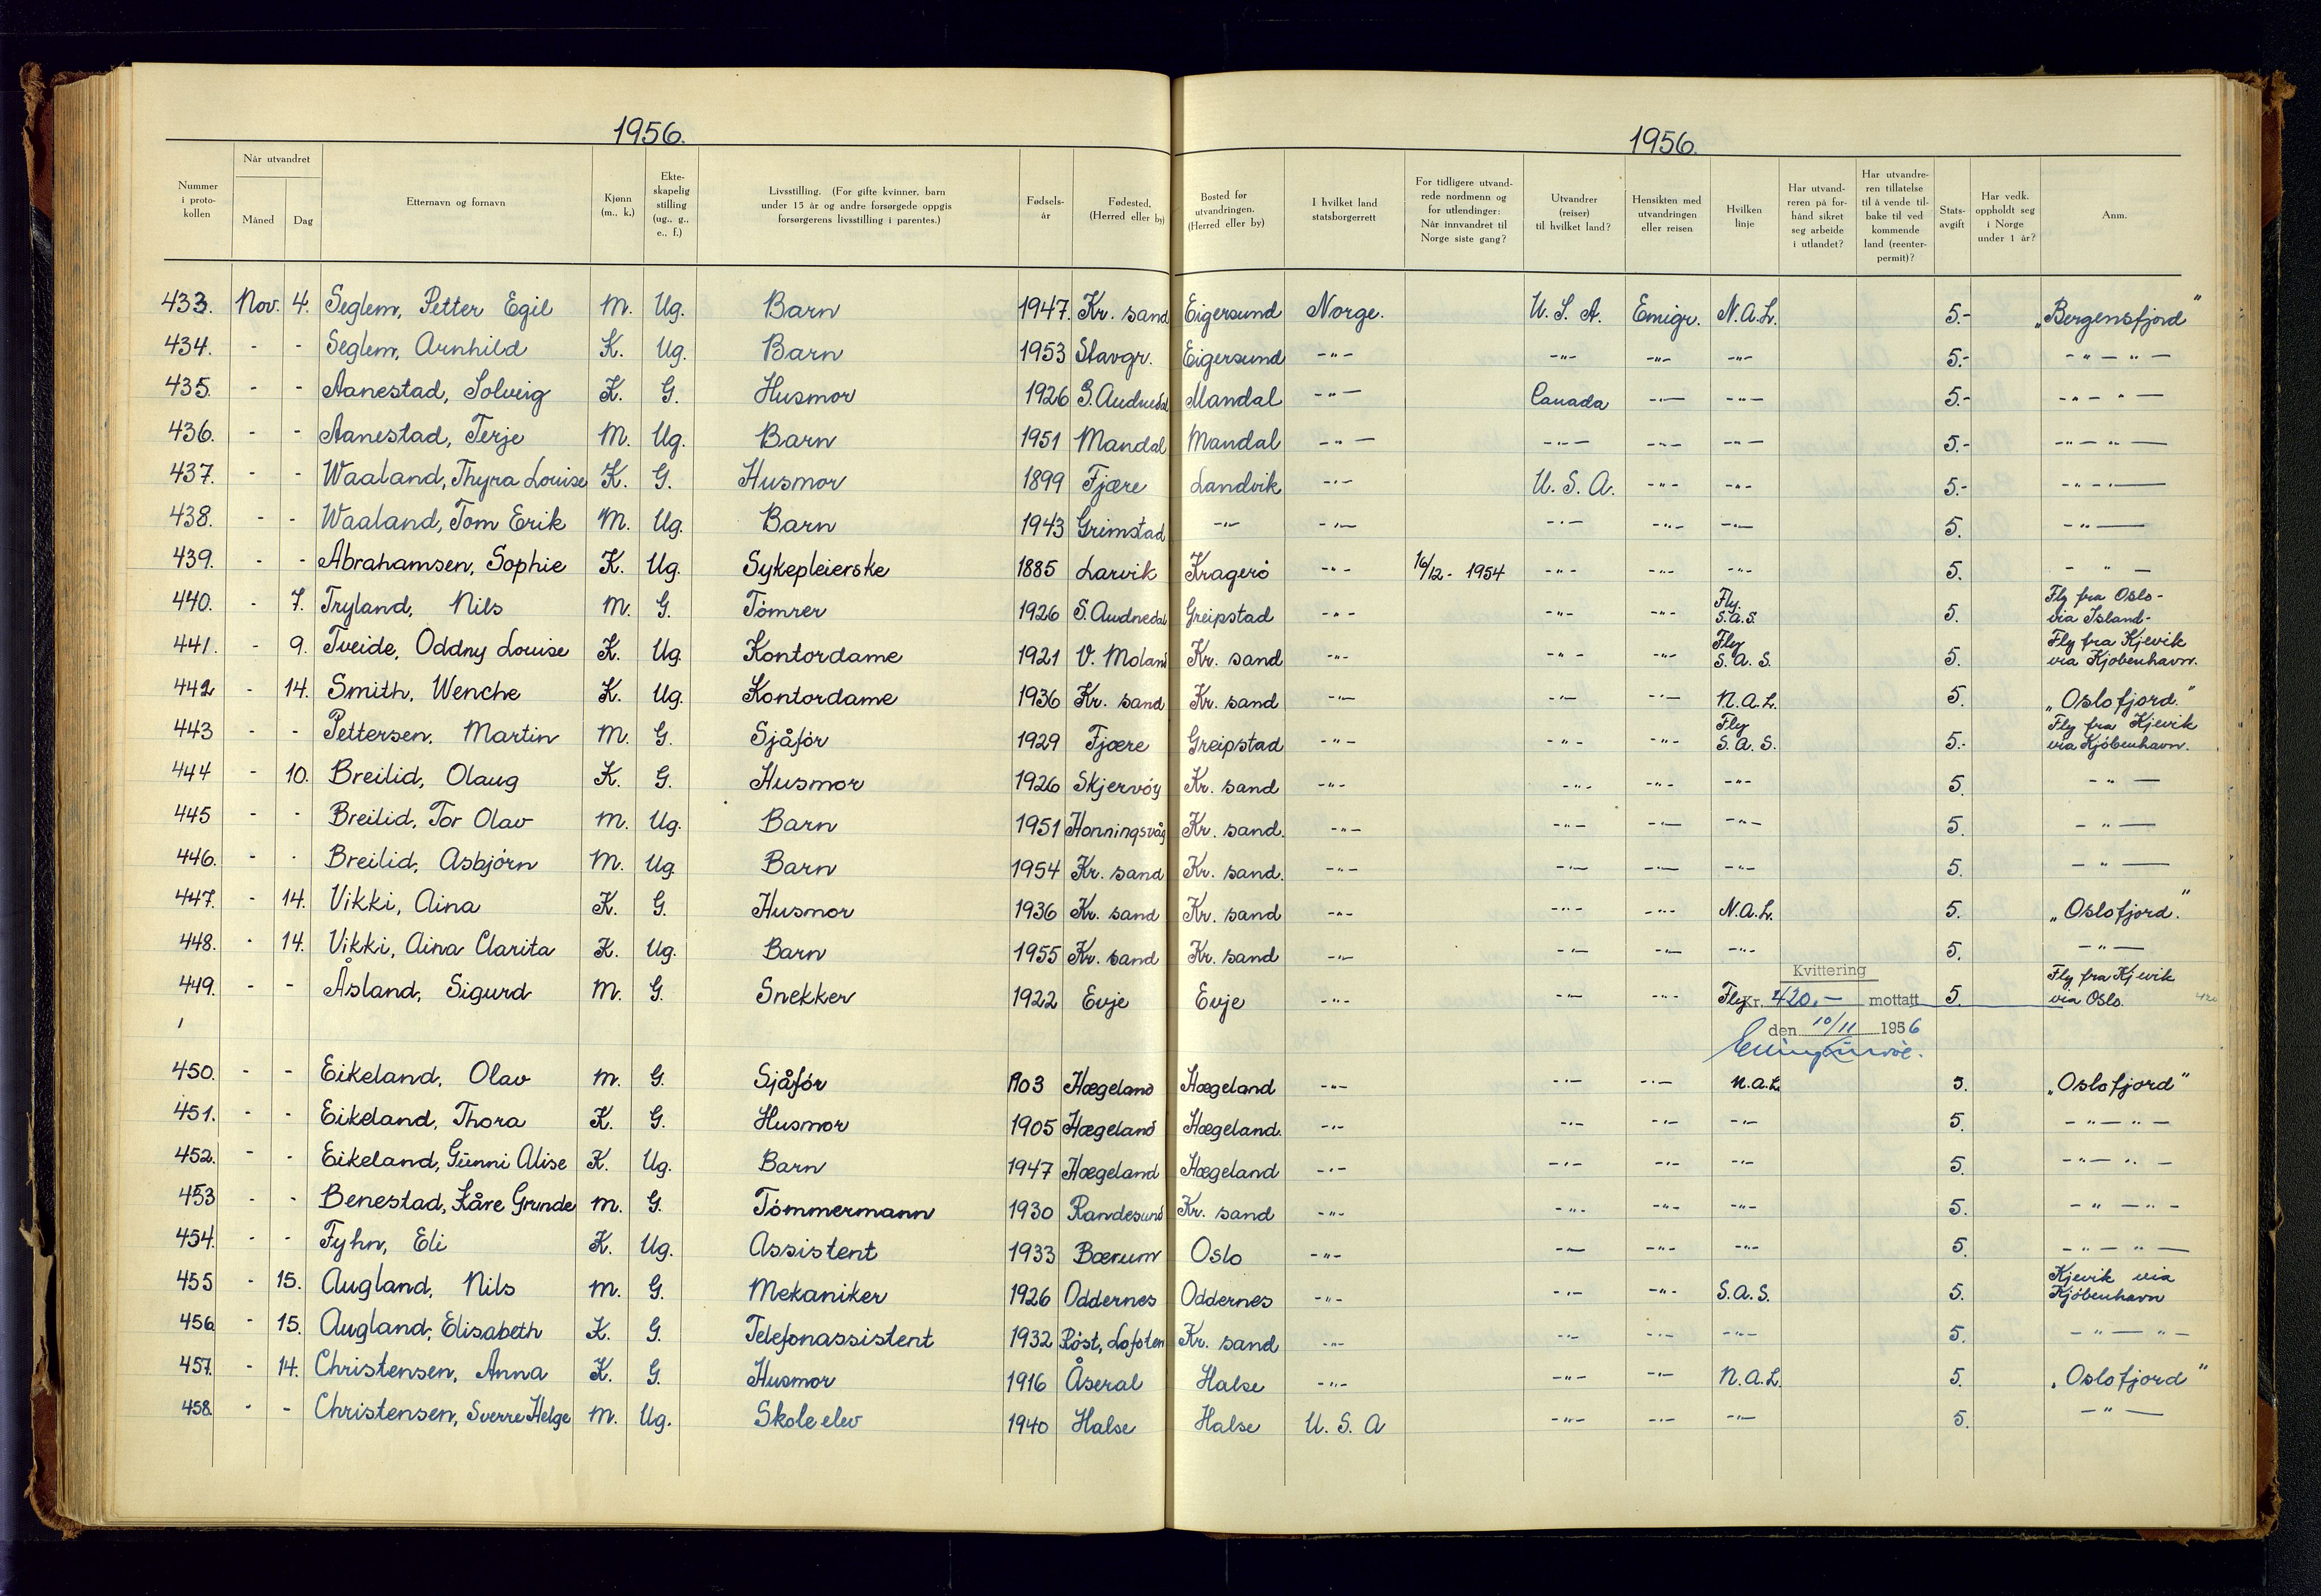 1956.
1956.
Nummer i proto-kollen | Når utvandret Måned | Dag | Etternavn og fornavn | Kjønn (m., k.) | Ekte-skapelig stilling (ug., g., e., f.) | Livsstilling. (For gifte kvinner, barn under 15 år og andre forsørgede oppgis forsørgerens livsstilling i parentes.) | Fødsels-år | Fødested. (Herred eller by) | Bosted før utvandringen. (Herred eller by) | I hvilket land statsborgerrett | For tidligere utvand-rede nordmenn og for utlendinger: Når innvandret til Norge siste gang? | Utvandrer (reiser) til hvilket land? | Hensikten med utvandringen eller reisen | Hvilken linje | Har utvand-reren på for-hånd sikret seg arbeide i utlandet? | Har utvandre-ren tillatelse til å vende til-bake til ved kommende land (reenter-permit)? | Stats-avgift | Har vedk. oppholdt seg i Norge under 1 år? | Anm.
433. Nov. 4. Seglem, Petter Egil M. Ug. Barn 1947. Kr. sand Eigersund Norge. U. S. A. Emigr. N.A.L. 5.- „Bergensfjord"
434. - - Seglem, Arnhild K. Ug. Barn 1953 Stavgr. Eigersund -"- -"- -"- -"- 5.- -"-"-
435. - - Aanestad, Solveig K. G. Husmor 1926 S. Audnedal Mandal -"- Canada -"- -"- 5.- -"-"-
436. - - Aanestad, Terje M. Ug. Barn 1951 Mandal Mandal -"- -"- -"- -"- 5.- -"-"-
437. - - Waaland, Thyra Louise K. G. Husmor 1899 Fjære Landvik -"- U. S. A. -"- -"- 5.- -"-"-
438. - - Waaland, Tom Erik M. Ug. Barn 1943 Grimstad -"- -"- -"- -"- -"- 5. -"-
439. - - Abrahamsen, Sophie K. Ug. Sykepleierske 1885 Larvik Kragerö -"- 16/12 - 1954 -"- -"- -"- 5. -"-
440. - 7. Tryland, Nils M. G. Tömrer 1926 S. Audnedal Greipstad -"- -"- -"- Fly. S.A.S. 5. Fly fra Oslo - via Island -
441. - 9. Tveide, Oddny Louise K. Ug. Kontordame 1921 V. Moland Kr. sand -"- -"- -"- Fly S. A. S. 5. Fly fra Kjevik via Kjøbenhavn.
442 - 14. Smith, Wenche K. Ug. Kontordame 1936 Kr. sand Kr. sand -"- -"- -"- N.A.L. 5. „Oslofjord."
443 - - Pettersen, Martin M. G. Sjåför 1929 Fjære Greipstad -"- -"- -"- Fly S. A. S. 5.- Fly fra Kjevik via Kjöbenhavn.
444 - 10. Breilid, Olaug K. G. Husmor 1926 Skjervöy Kr. sand -"- -"- -"- -"- 5. -"-
445 - - Breilid, Tor Olav M. Ug. Barn 1951 Honningsvåg Kr. sand. -"- -"- -"- -"- 5. -"-
446. - - Breilid, Asbjörn M. Ug. Barn 1954 Kr. sand Kr. sand. -"- -"- -"- -"- 5. -"-
447. - 14. Vikki, Aina K. G. Husmor 1936 Kr. sand Kr. sand -"- -"- -"- N.A.L. 5. „Oslofjord."
448. - 14. Vikki, Aina Clarita K. Ug. Barn 1955 Kr. sand Kr. sand -"- -"- -"- -"- 5. -"-
Kvittering
449. - - Åsland, Sigurd M. G. Snekker 1922 Evje Evje -"- -"- -"- Fly Kr. 420.- mottatt 5. Fly fra Kjevik via Oslo. 420
den 10/11 1956
450. - - Eikeland, Olav M. G. Sjåför 1903 Hægeland Hægeland -"- -"- -"- N.A.L. 5. „Oslofjord"
451. - - Eikeland, Thora K. G. Husmor 1905 Hægeland Hægeland. -"- -"- -"- -"- 5. -"-"-
452. - - Eikeland, Günni Alise K. Ug. Barn 1947 Hægeland Hægeland -"- -"- -"- -"- 5. -"-"-
453 - - Benestad, Kåre Grunde M. G. Tömmermann 1930 Randesund Kr. sand -"- -"- -"- -"- 5. -"-"-
454. - - Fyhn, Eli K. Ug. Assistent 1933 Bærum Oslo -"- -"- -"- -"- 5. -"-"-
455 - 15. Augland, Nils M. G. Mekaniker 1926 Oddernes Oddernes -"- -"- -"- S.A.S. 5. Kjevik via Kjöbenhavn
456 - 15. Augland, Elisabeth K. G. Telefonassistent 1932 Röst, Lofoten Kr. sand -"- -"- -"- -"- 5. -"-"-
457. - 14. Christensen, Anna K. G. Husmor 1916 Åseral Halse -"- -"- -"- N.A.L. 5. „Oslofjord"
458. - - Christensen, Sverre Helge M. Ug. Skoleelev 1940 Halse Halse U. S. A -"- -"- -"- 5. -"-